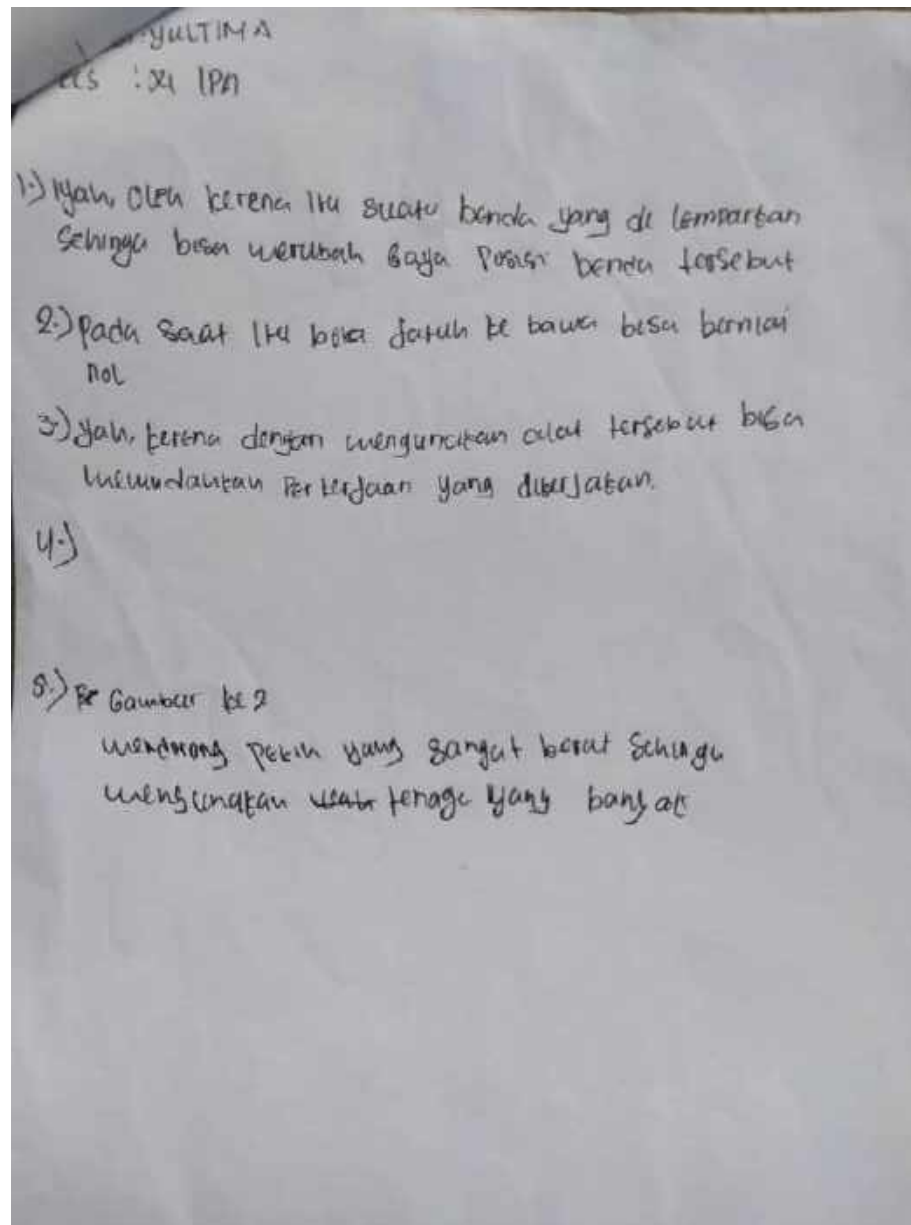 YULTIMA
: XI IPA
1.) Iyah, oleh kerena itu suatu benda yang di lemparkan
Sehinga bisa merubah gaya Posisi benda tersebut
2.) Pada saat itu bola jatuh ke bawa bisa bernilai
nol
3.) Yah, kerena dengan mengunakan alat tersebut bisa
memudahkan Perkerjaan yang dikerjakan.
4.)
5.) Gambar ke 2
mendorong yang sangat berat Sehinga
mengunakan tenaga yang banyak